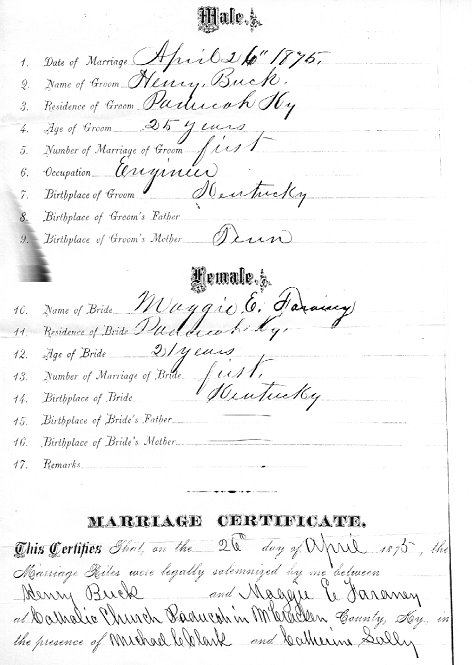 Male.
1. Date of Marriage April 26" 1875.
2. Name of Groom Henry Buck.
3. Residence of Groom Paducah Ky
4. Age of Groom 25 years
5. Number of Marriage of Groom first
6. Occupation Engineer
7. Birthplace of Groom Kentucky
8. Birthplace of Groom's Father
9. Birthplace of Groom's Mother Tenn
Female.
10. Name of Bride Maggie E. Faraney
11. Residence of Bride Paducah Ky.
12. Age of Bride 21 years
13. Number of Marriage of Bride first.
14. Birthplace of Bride Kentucky
15. Birthplace of Bride's Father
16. Birthplace of Bride's Mother
17. Remarks
MARRIAGE CERTIFICATE.
This Certifies That, on the 26 day of April 1875, the
Marriage Rites were legally solemnized by me between
Henry Buck and Maggie E Faraney
at Catholic Church Paducah in McCracken County, Ky. in
the presence of Michael Clark and Catherine Sally